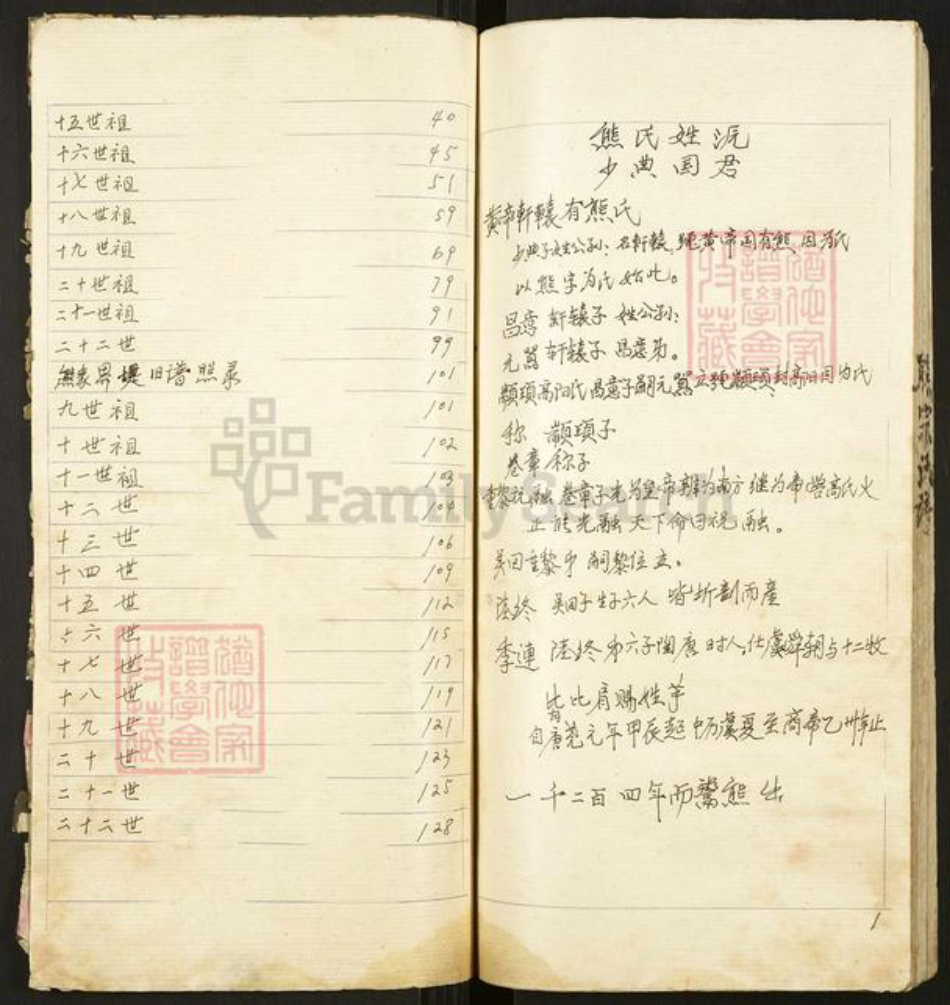 十五世祖 40
十六世祖 45
十七世祖 51
十八世祖 59
十九世祖 69
二十世祖 79
二十一世祖 91
二十二世 99
熊家界 旧谱照录 101
九世祖 101
十世祖 102
十一世祖 103
十二世 104
十三世 106
十四世 109
十五世 112
十六世 115
十七世 117
十八世 119
十九世 121
二十世 123
二十一世 125
二十二世 128
熊氏姓沅
少典国君
黄帝軒轅有熊氏
少典子姓公孙:名軒轅,黄帝国有熊,因为氏
以熊字为氏始此。
昌意 軒辕子 姓公孙:
元嚣 軒辕子 昌意弟。
颛頊高阳氏昌意子嗣元嚣立 颛頊封高阳因为氏
称 颛頊子
卷章 称子
黎祝融 卷章子 为南方 继为帝喾高氏火
正能光融天下命曰祝融。
吴回重黎弟 嗣黎位立。
陆终 吴回子生子六人 皆折剖而产
季連 陆终弟六子陶唐时人,仕虞舜朝与十二牧
比肩赐姓芈
自唐尧元年甲辰起 虞夏至商帝乙 止
一千二百四年而鬻熊生
1
猶他家譜學會收藏
猶他家譜學會收藏
FamilySearch